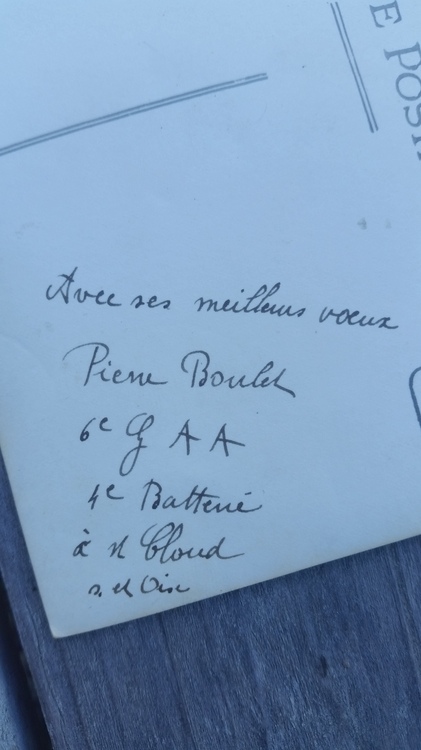 E POST
Avec ses meilleurs voeux
Pierre Boulet
6e G A A
4e Batterie
à st Cloud
s. et Oise